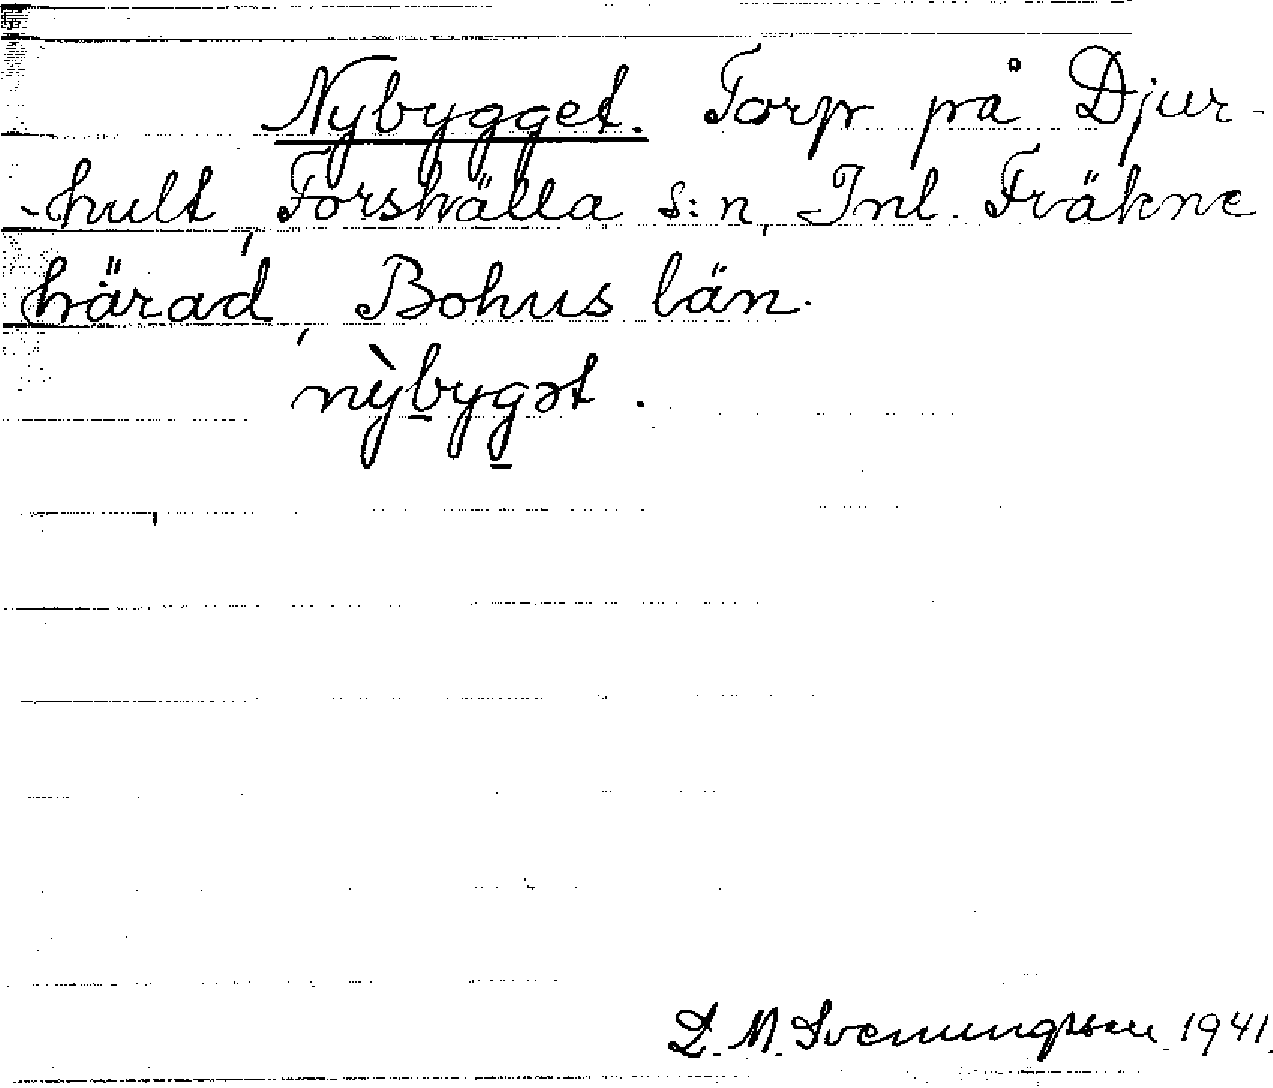 Nybygget. Torp på Djur-
-hult, Forshälla s:n, Inl. Fräkne
härad, Bohus län.
nỳbygət.
D. M. Svenungsson 1941.